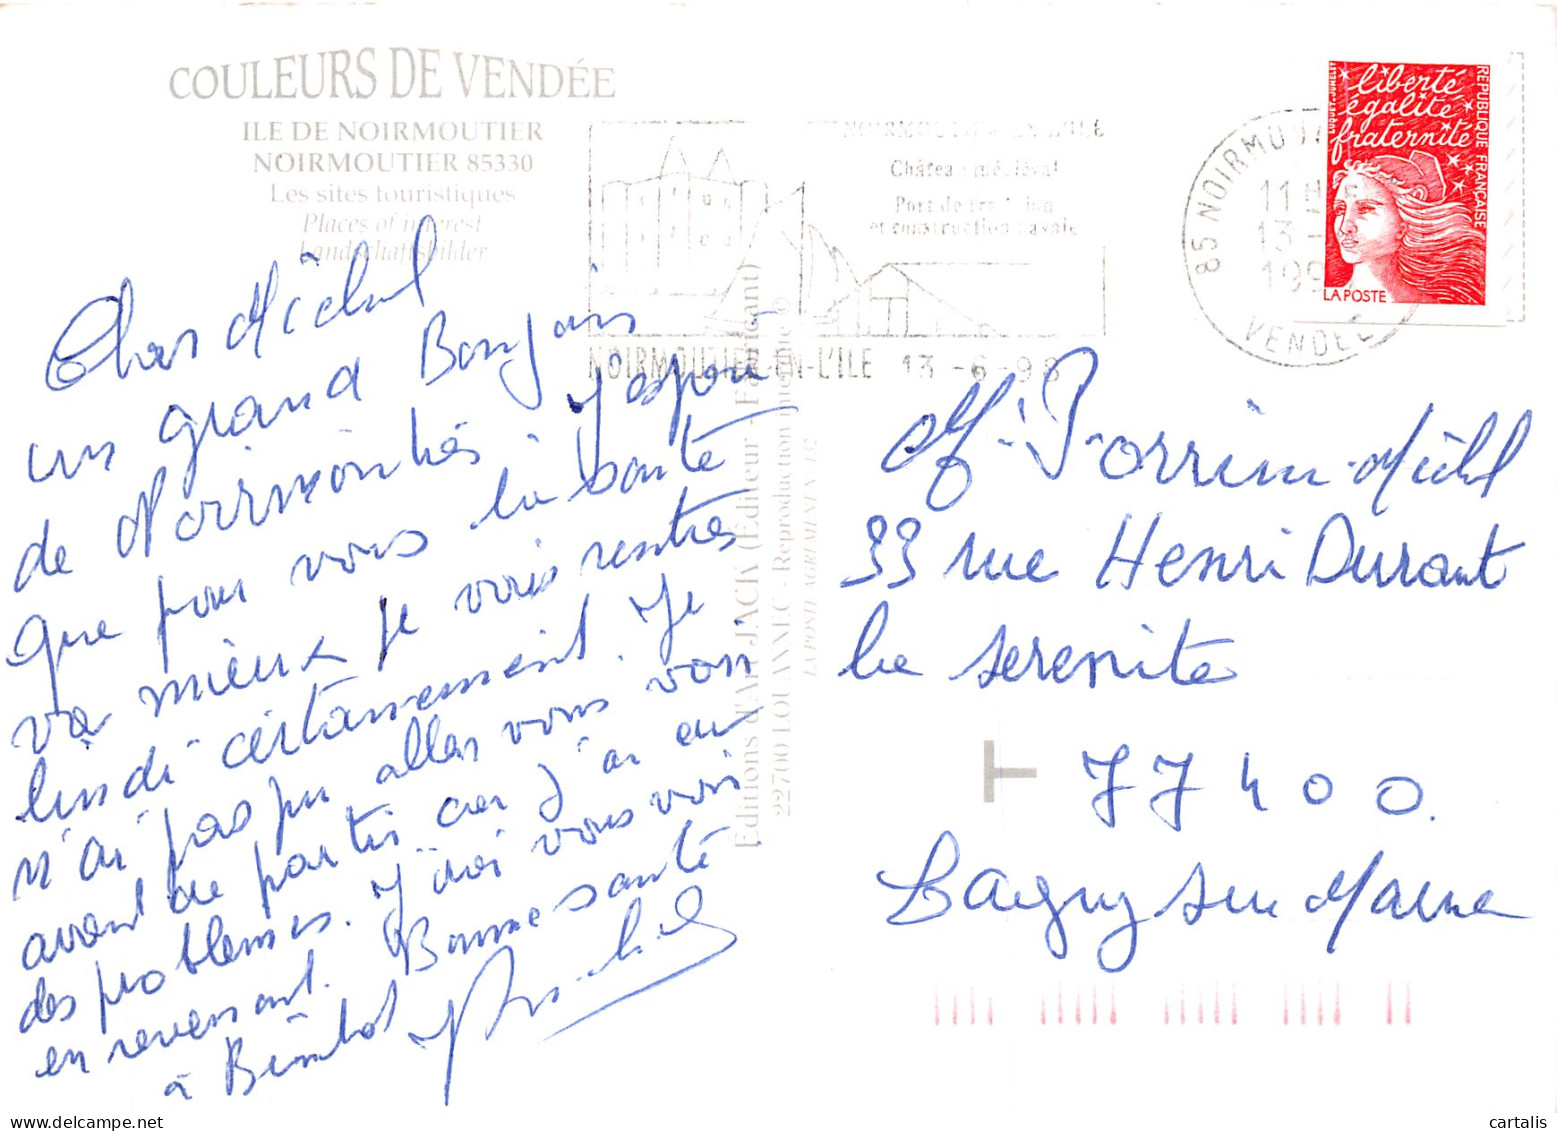 COULEURS DE VENDÉE
ILE DE NOIRMOUTIER
NOIRMOUTIER 85330
Les sites touristiques
Places of interest
Landschaftsbilder
NOIRMOUTIER-EN-L'ILE
Château médiéval
Port de tradition
et construction navale
NOIRMOUTIER-EN-L'ILE 13-6-98
85 NOIRMOUT
11H
13-
199
VENDEE
liberté
égalité
fraternité
RÉPUBLIQUE FRANÇAISE
LA POSTE
Cher Michel
un grand Bonjour
de Noirmoutier j'espère
que pour vous la santé
va mieux je vais rentrer
lundi certainement. Je
n'ai pas pu aller vous voir
avant de partir car j'ai eu
des problemes. J'irai vous voir
en revenant. Bonne santé
à Bientot
Editions d'Art JACK (Éditeur - Fabricant)
22700 LOUANNEC - Reproduction interdite ©
LA POSTE AGREMENT N° 182
M. Porrin Michel
33 rue Henri Durant
la serenite
77400.
Lagny sur Marne
cartalis